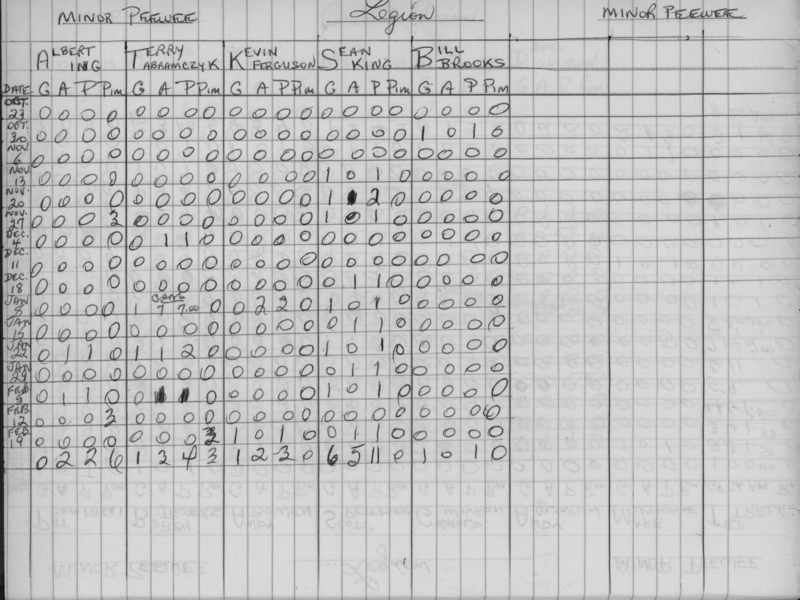 MINOR PEEWEE Legion MINOR PEEWEE
ALBERT TERRY KEVIN SEAN BILL
ING ABRAMCZYK FERGUSON KING BROOKS
DATE G A P Pim G A P Pim G A P Pim G A P Pim G A P Pim
OCT. 23 0 0 0 0 0 0 0 0 0 0 0 0 0 0 0 0 0 0 0 0
OCT. 30 0 0 0 0 0 0 0 0 0 0 0 0 0 0 0 0 1 0 1 0
NOV 6 0 0 0 0 0 0 0 0 0 0 0 0 0 0 0 0 0 0 0 0
NOV. 13 0 0 0 0 0 0 0 0 0 0 0 0 1 0 1 0 0 0 0 0
NOV. 20 0 0 0 0 0 0 0 0 0 0 0 0 1 1 2 0 0 0 0 0
NOV. 27 0 0 0 3 0 0 0 0 0 0 0 0 1 0 1 0 0 0 0 0
DEC. 4 0 0 0 0 0 1 1 0 0 0 0 0 0 0 0 0 0 0 0 0
DEC. 11 0 0 0 0 0 0 0 0 0 0 0 0 0 0 0 0 0 0 0 0
DEC. 18 0 0 0 0 0 0 0 0 0 0 0 0 0 1 1 0 0 0 0 0
JAN 8 0 0 0 0 1 0 2 2 0 1 0 1 0 0 0 0 0
JAN 15 0 0 0 0 0 0 0 0 0 0 0 0 0 1 1 0 0 0 0 0
JAN 22 0 1 1 0 1 1 2 0 0 0 0 0 1 0 1 0 0 0 0 0
JAN 29 0 0 0 0 0 0 0 0 0 0 0 0 0 1 1 0 0 0 0 0
FEB 0 1 1 0 0 1 1 0 0 0 0 0 1 0 1 0 0 0 0 0
FEB. 12 0 0 0 3 0 0 0 0 0 0 0 0 0 0 0 0 0 0 0 0
FEB 19 0 0 0 0 0 0 0 3 1 0 1 0 0 1 1 0 0 0 0 0
0 2 2 6 1 3 4 3 1 2 3 0 6 5 11 0 1 0 1 0